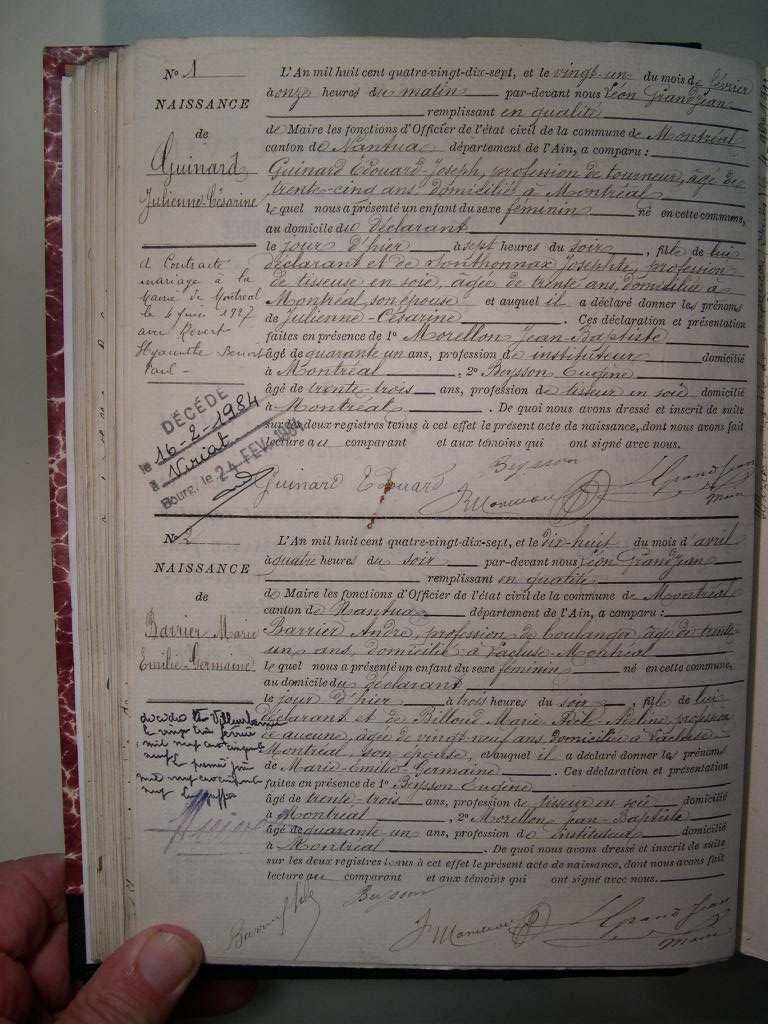 No 1
NAISSANCE
de
Guinard
Julienne-Césarine
L'An mil huit cent quatre-vingt-dix-sept, et le vingt-un du mois de février
à onze heures du matin par-devant nous Léon Grandjean
remplissant en qualité
de Maire les fonctions d'Officier de l'état civil de la commune de Montréal
canton de Nantua département de l'Ain, a comparu :
Guinard Édouard-Joseph, profession de tourneur, âgé de
trente-cinq ans, domicilié à Montréal
lequel nous a présenté un enfant du sexe féminin né en cette commune,
au domicile du déclarant
le jour d'hier à sept heures du soir, fille de lui
déclarant et de Sonthonnax Josephte, profession
de tisseuse en soie, âgée de trente ans, domiciliée à
Montréal, son épouse et auquel il a déclaré donner les prénoms
de Julienne-Césarine. Ces déclaration et présentation
faites en présence de 1o Morellon Jean-Baptiste
âgé de quarante un ans, profession de instituteur domicilié
à Montréal, 2o Beysson Eugène
âgé de trente-trois ans, profession de tisseur en soie domicilié
à Montréal. De quoi nous avons dressé et inscrit de suite
sur les deux registres tenus à cet effet le présent acte de naissance, dont nous avons fait
lecture au comparant et aux témoins qui ont signé avec nous.
A Contracté
mariage à la
Mairie de Montréal
le 4 juin 1927
avec
Hyacinthe Benoit
Paul
DÉCÉDÉ
le 16-2-1984
à Viriat
Bourg, le 24 FEV. 1984
Guinard Edouard
Beysson
Grandjean
Maire
No 2
NAISSANCE
de
Barrier Marie
Emilie-Germaine
L'An mil huit cent quatre-vingt-dix-sept, et le dix-huit du mois d'avril
à quatre heures du soir par-devant nous Léon Grandjean
remplissant en qualité
de Maire les fonctions d'Officier de l'état civil de la commune de Montréal
canton de Nantua département de l'Ain, a comparu :
Barrier André, profession de boulanger, âgé de trente
un ans, domicilié à Lacluse-Montréal
lequel nous a présenté un enfant du sexe féminin né en cette commune,
au domicile du déclarant
le jour d'hier à trois heures du soir, fille de lui
déclarant et de Billoud Marie profession
de aucune, âgée de vingt-neuf ans domiciliée à Lacluse-
Montréal, son épouse, et auquel il a déclaré donner les prénoms
de Marie-Emilie-Germaine. Ces déclaration et présentation
faites en présence de 1o Beysson Eugène
âgé de trente-trois ans, profession de tisseur en soie domicilié
à Montréal, 2o Morellon Jean-Baptiste
âgé de quarante un ans, profession de instituteur domicilié
à Montréal. De quoi nous avons dressé et inscrit de suite
sur les deux registres tenus à cet effet le présent acte de naissance, dont nous avons fait
lecture au comparant et aux témoins qui ont signé avec nous.
décédée à Villeurbanne
le vingt trois février
mil neuf cent cinquante
neuf Le premier juin
mil neuf cent cinquante
neuf Le greffier
Beysson
Grandjean
Maire